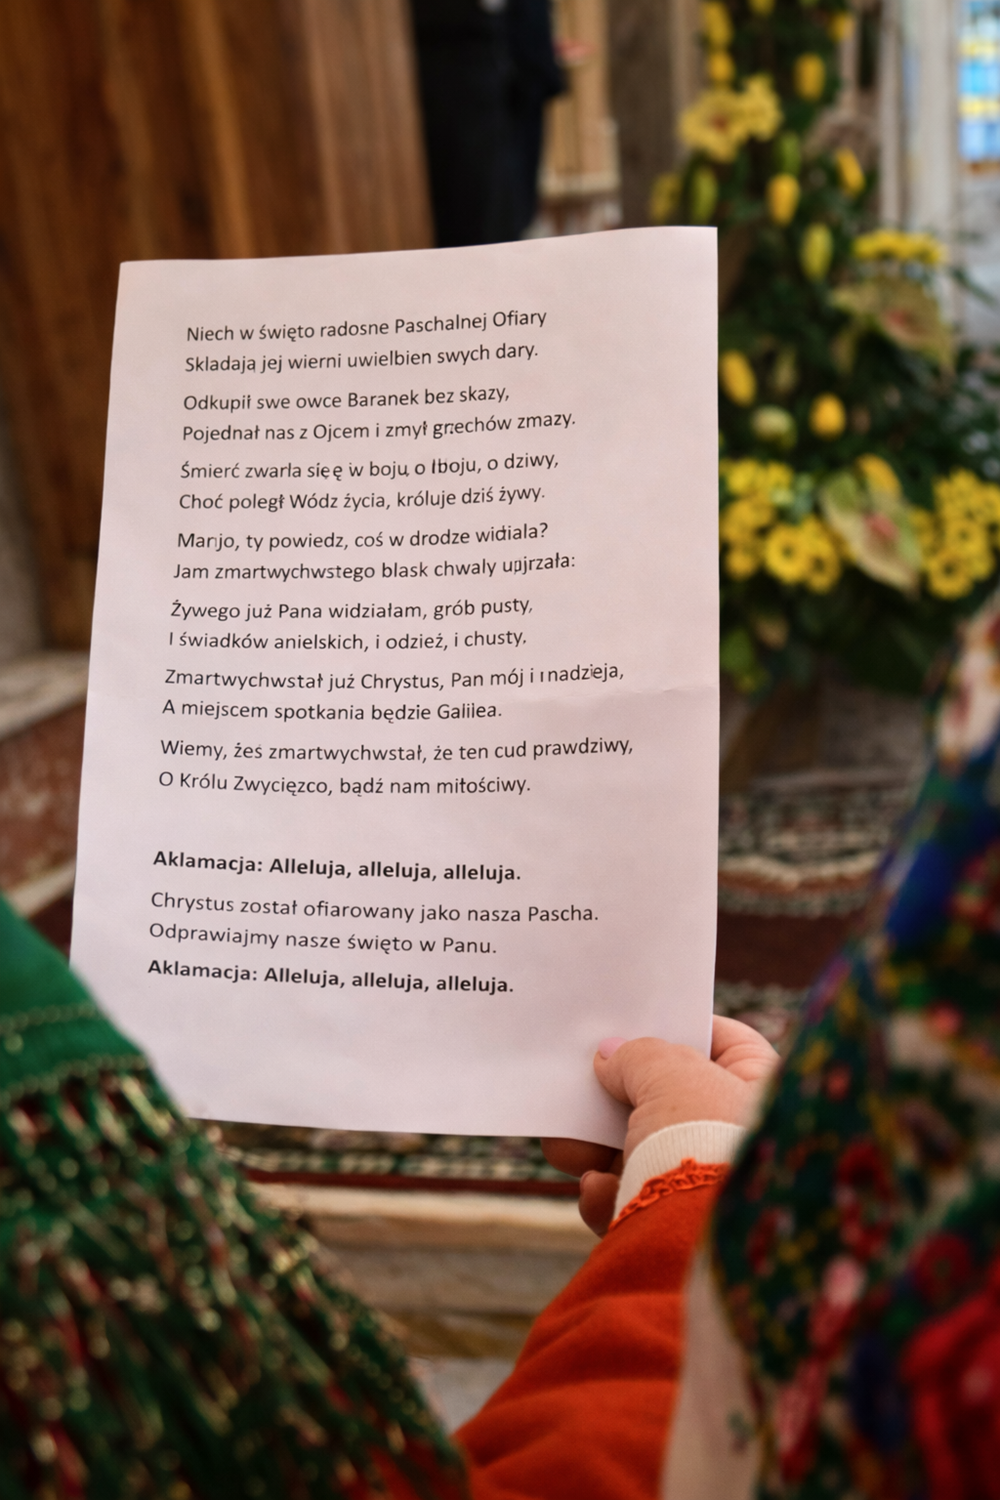 Niech w święto radosne Paschalnej Ofiary
Skladają jej wierni uwielbien swych dary.
Odkupił swe owce Baranek bez skazy,
Pojednał nas z Ojcem i zmył grzechów zmazy.
Śmierć zwarla się w boju, o dziwy,
Choć poległ Wódz życia, króluje dziś żywy.
ty powiedz, coś w drodze widiala?
Jam zmartwychwstego blask chwaly
Żywego już Pana widziałam, grób pusty,
I świadków anielskich, i odzież, i chusty.
Zmartwychwstał już Chrystus, Pan mój i nadzieja,
A miejscem spotkania będzie Galilea.
Wiemy, żeś zmartwychwstał, że ten cud prawdziwy,
O Królu Zwycięzco, bądź nam miłościwy.
Aklamacja: Alleluja, alleluja, alleluja.
Chrystus został ofiarowany jako nasza Pascha.
Odprawiajmy nasze święto w Panu.
Aklamacja: Alleluja, alleluja, alleluja.